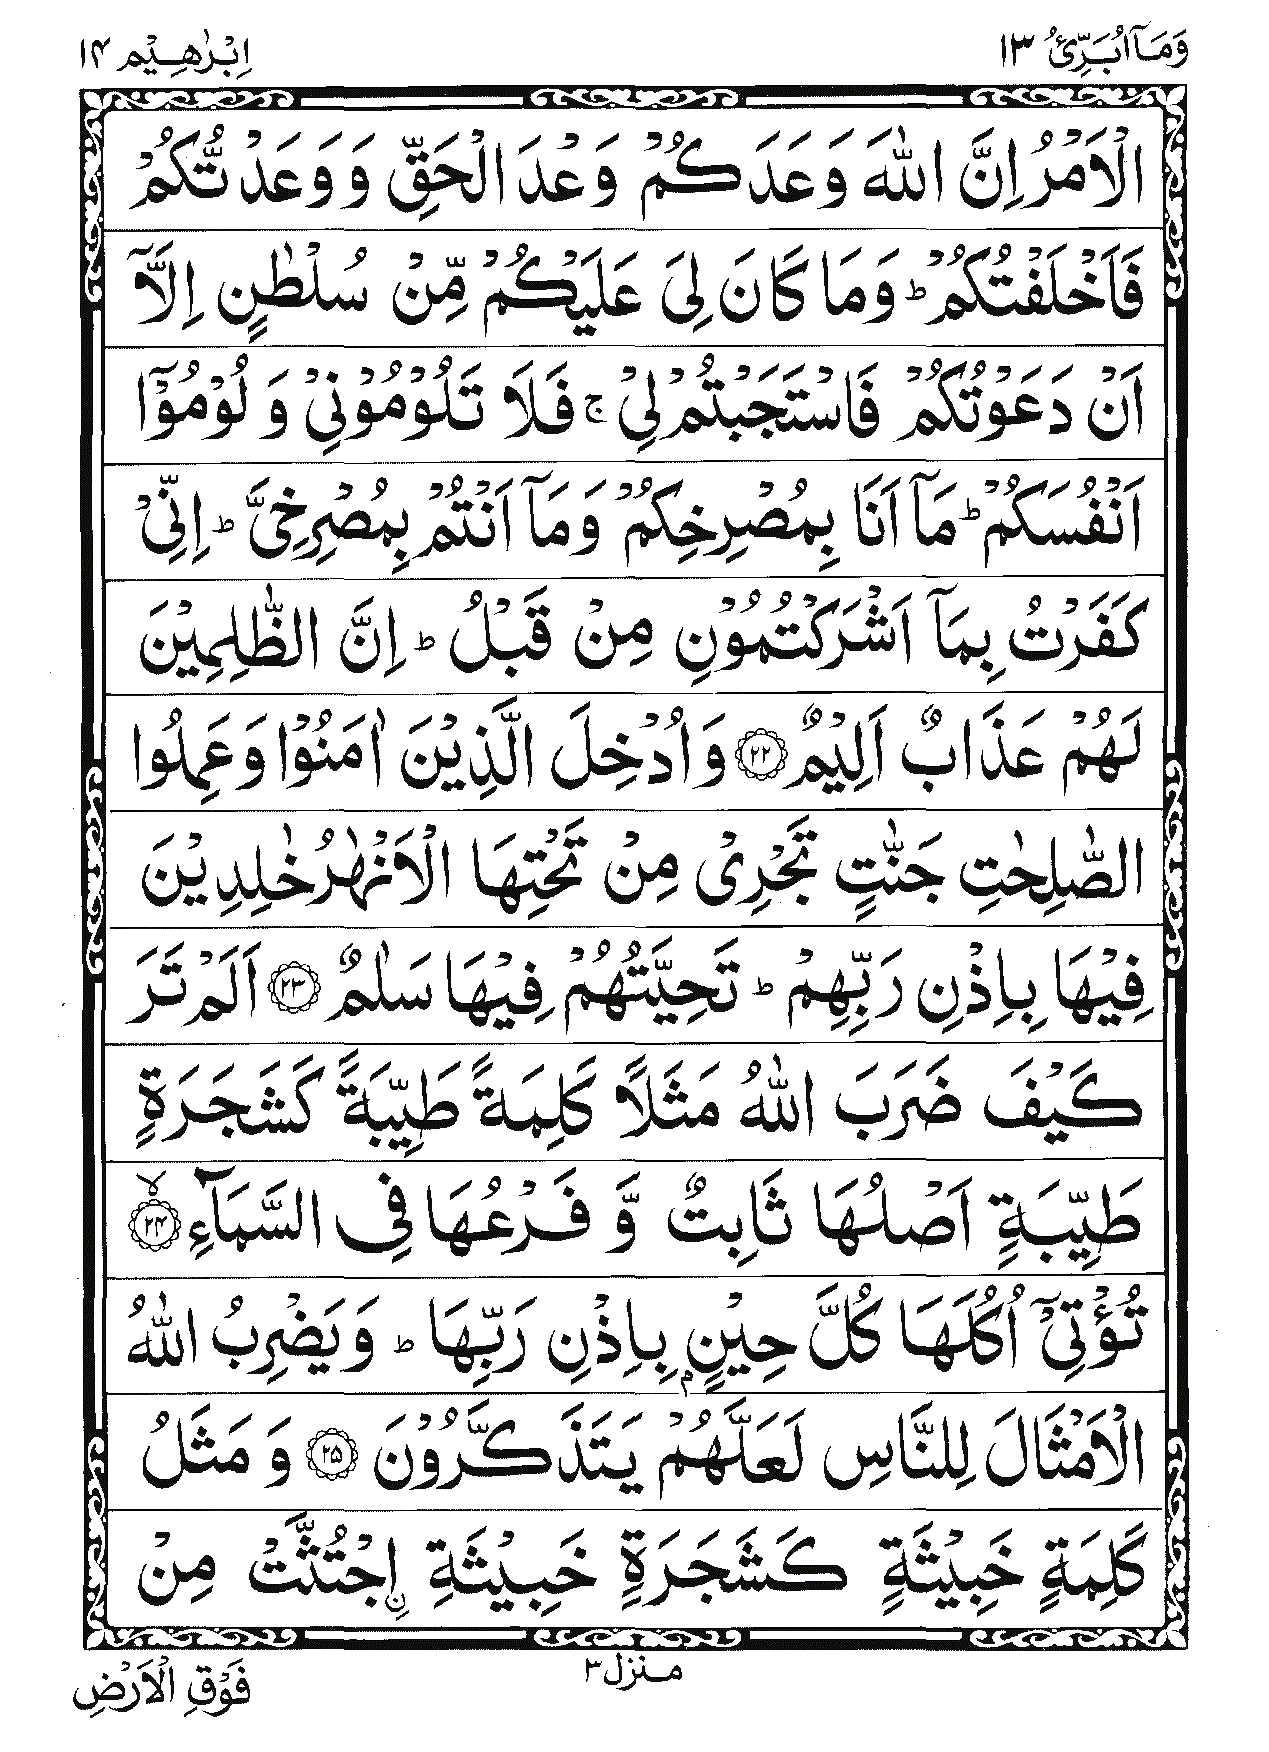 وَمَاۤ اُبَرِّئُ ۱۳
اِبْرٰهِیْم ۱۴
الْاَمْرُ اِنَّ اللّٰهَ وَعَدَكُمْ وَعْدَ الْحَقِّ وَ وَعَدْتُّكُمْ
فَاَخْلَفْتُكُمْ ؕ وَمَا كَانَ لِیَ عَلَیْكُمْ مِّنْ سُلْطٰنٍ اِلَّاۤ
اَنْ دَعَوْتُكُمْ فَاسْتَجَبْتُمْ لِیْ ۚ فَلَا تَلُوْمُوْنِیْ وَ لُوْمُوْۤا
اَنْفُسَكُمْ ؕ مَاۤ اَنَا بِمُصْرِخِكُمْ وَمَاۤ اَنْتُمْ بِمُصْرِخِیَّ ؕ اِنِّیْ
كَفَرْتُ بِمَاۤ اَشْرَكْتُمُوْنِ مِنْ قَبْلُ ؕ اِنَّ الظّٰلِمِیْنَ
لَهُمْ عَذَابٌ اَلِیْمٌ ۲۲ وَاُدْخِلَ الَّذِیْنَ اٰمَنُوْا وَعَمِلُوا
الصّٰلِحٰتِ جَنّٰتٍ تَجْرِیْ مِنْ تَحْتِهَا الْاَنْهٰرُ خٰلِدِیْنَ
فِیْهَا بِاِذْنِ رَبِّهِمْ ؕ تَحِیَّتُهُمْ فِیْهَا سَلٰمٌ ۲۳ اَلَمْ تَرَ
كَیْفَ ضَرَبَ اللّٰهُ مَثَلًا كَلِمَةً طَیِّبَةً كَشَجَرَةٍ
طَیِّبَةٍ اَصْلُهَا ثَابِتٌ وَّ فَرْعُهَا فِی السَّمَآءِ ۙ ۲۴
تُؤْتِیْۤ اُكُلَهَا كُلَّ حِیْنٍۭ بِاِذْنِ رَبِّهَا ؕ وَیَضْرِبُ اللّٰهُ
الْاَمْثَالَ لِلنَّاسِ لَعَلَّهُمْ یَتَذَكَّرُوْنَ ۲۵ وَ مَثَلُ
كَلِمَةٍ خَبِیْثَةٍ كَشَجَرَةٍ خَبِیْثَةِ ِ۟اجْتُثَّتْ مِنْ
منزل ۳
فَوْقِ الْاَرْضِ